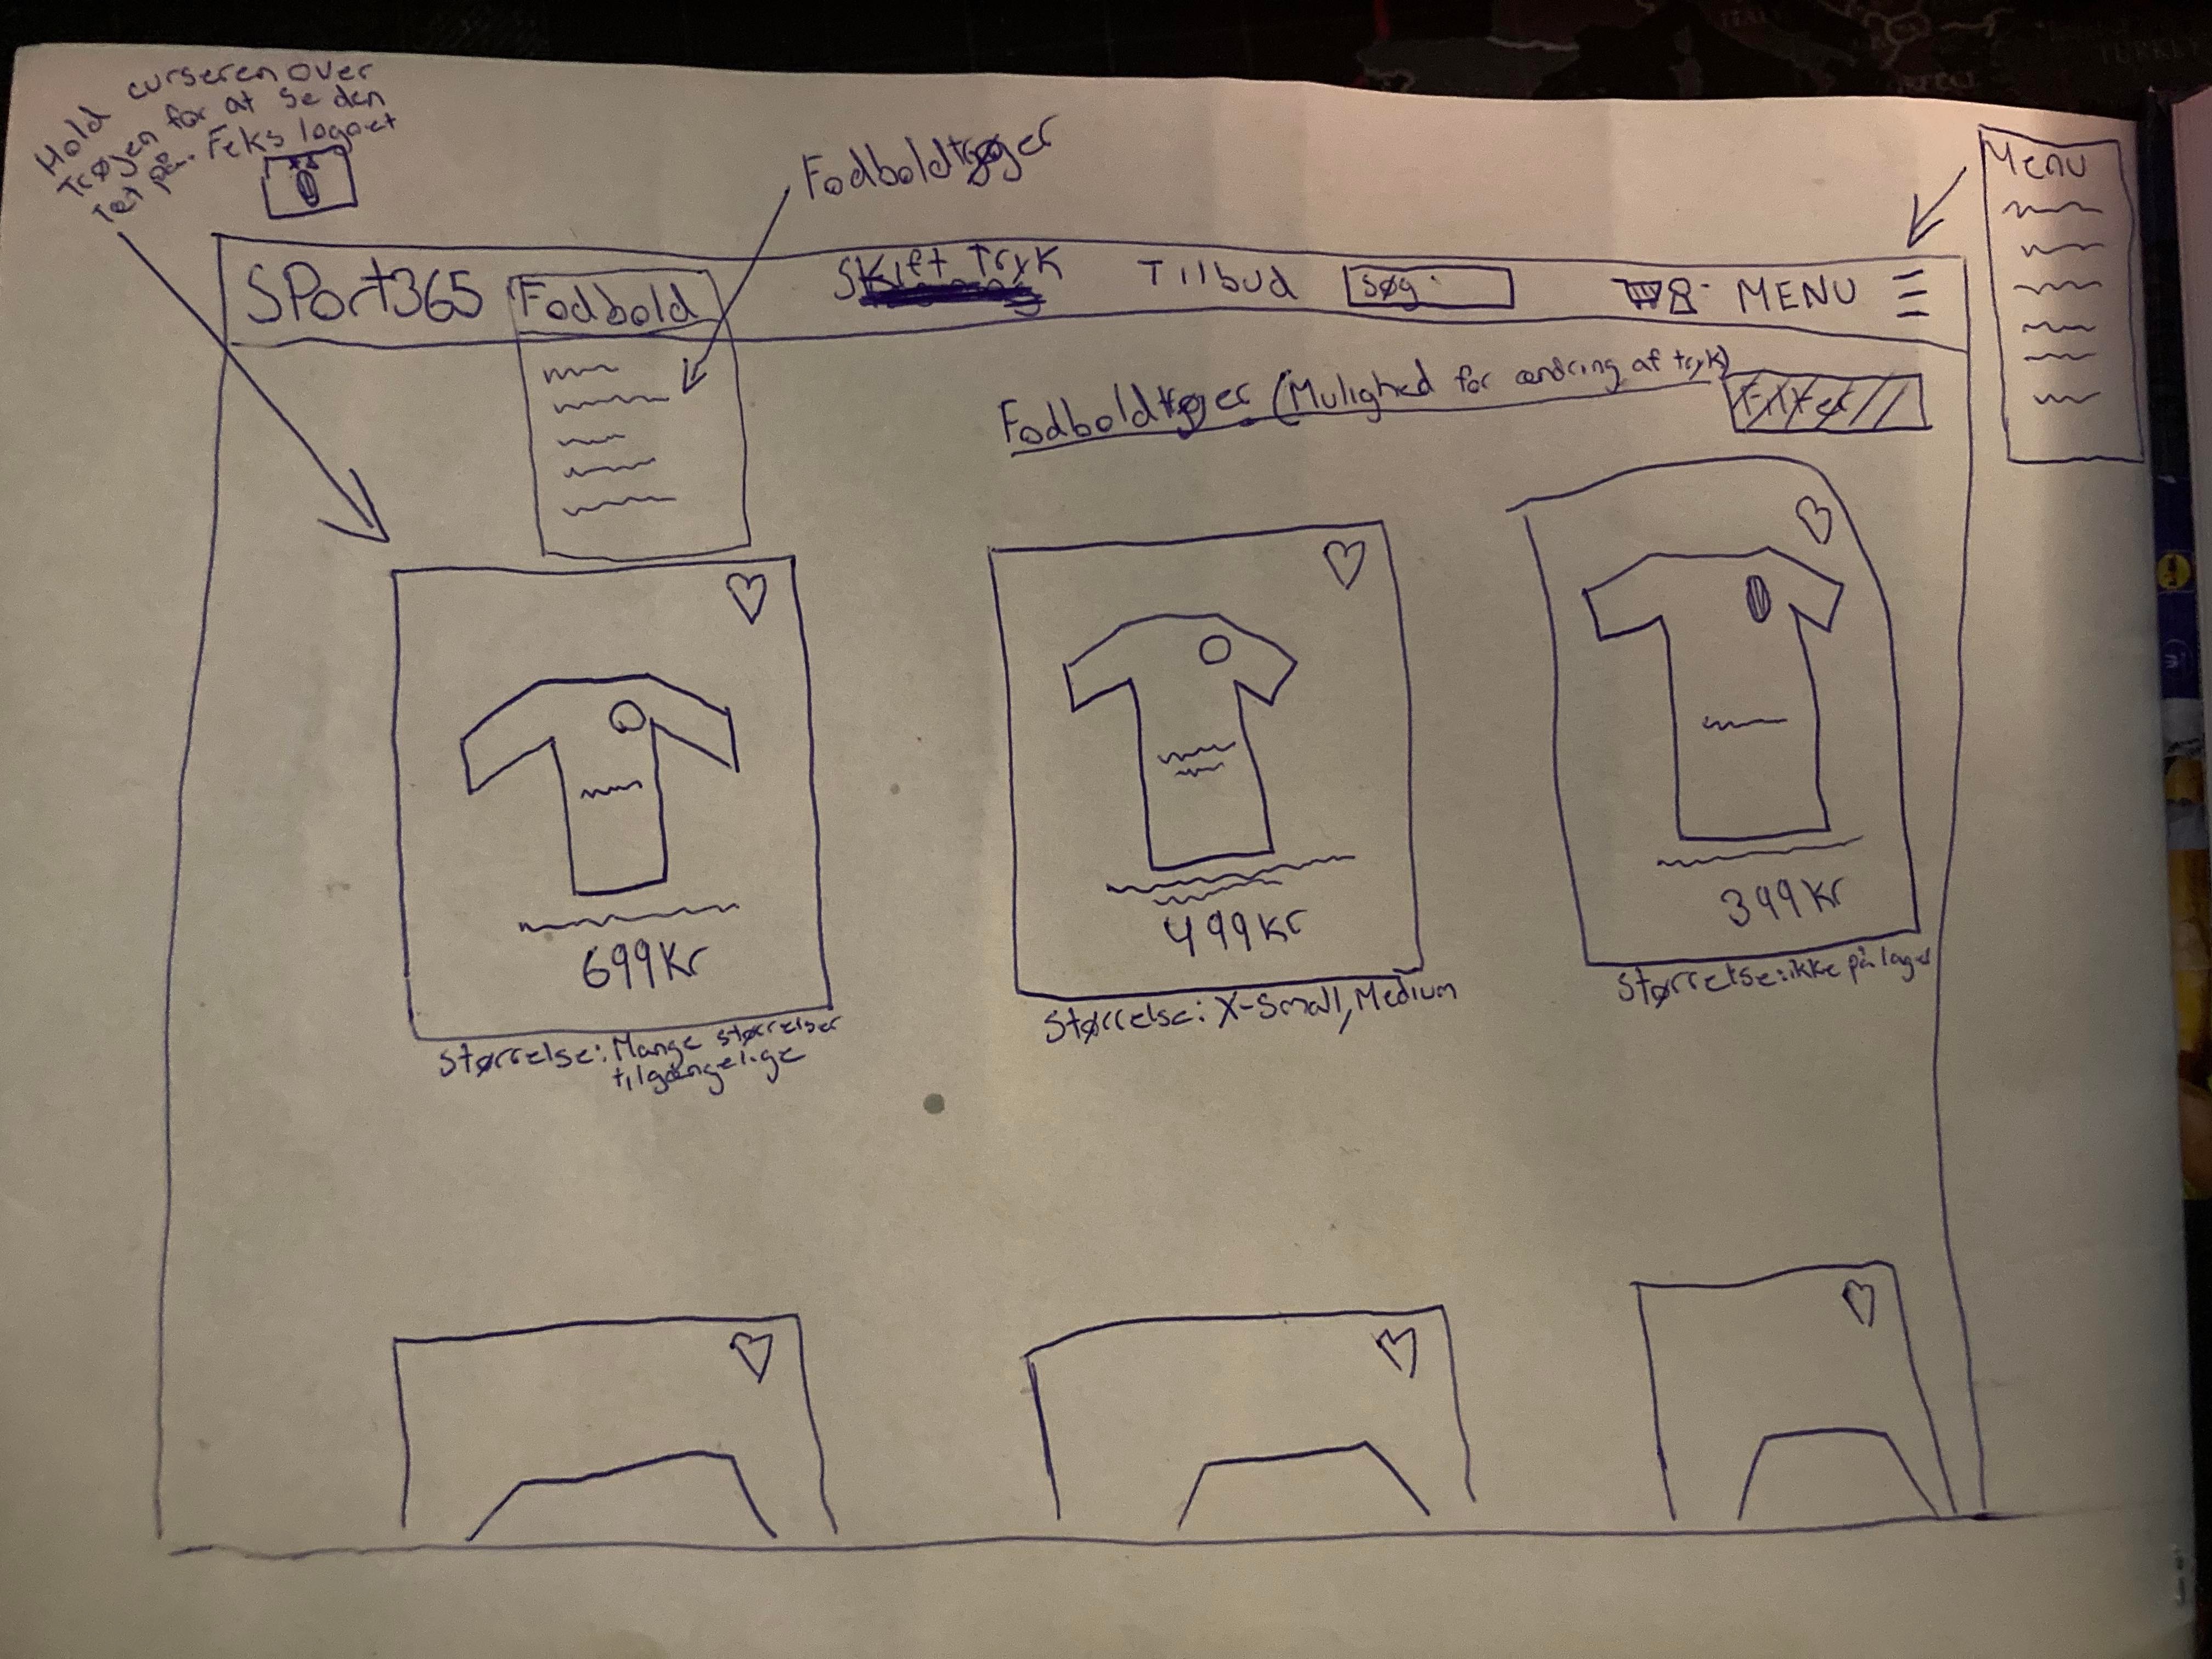 Hold curseren over
Trøjen for at se den
Tet på. Feks logoet
Fodboldtrøjer
Menu
SPort365
Fodbold
Skift Tryk
Tilbud
Søg
MENU
Fodboldtrøjer (Mulighed for ændring af tryk)
Filter
699Kr
Størrelse: Mange størrelser
tilgængelige
499Kr
Størrelse: X-Small, Medium
399Kr
Størrelse: ikke på lager